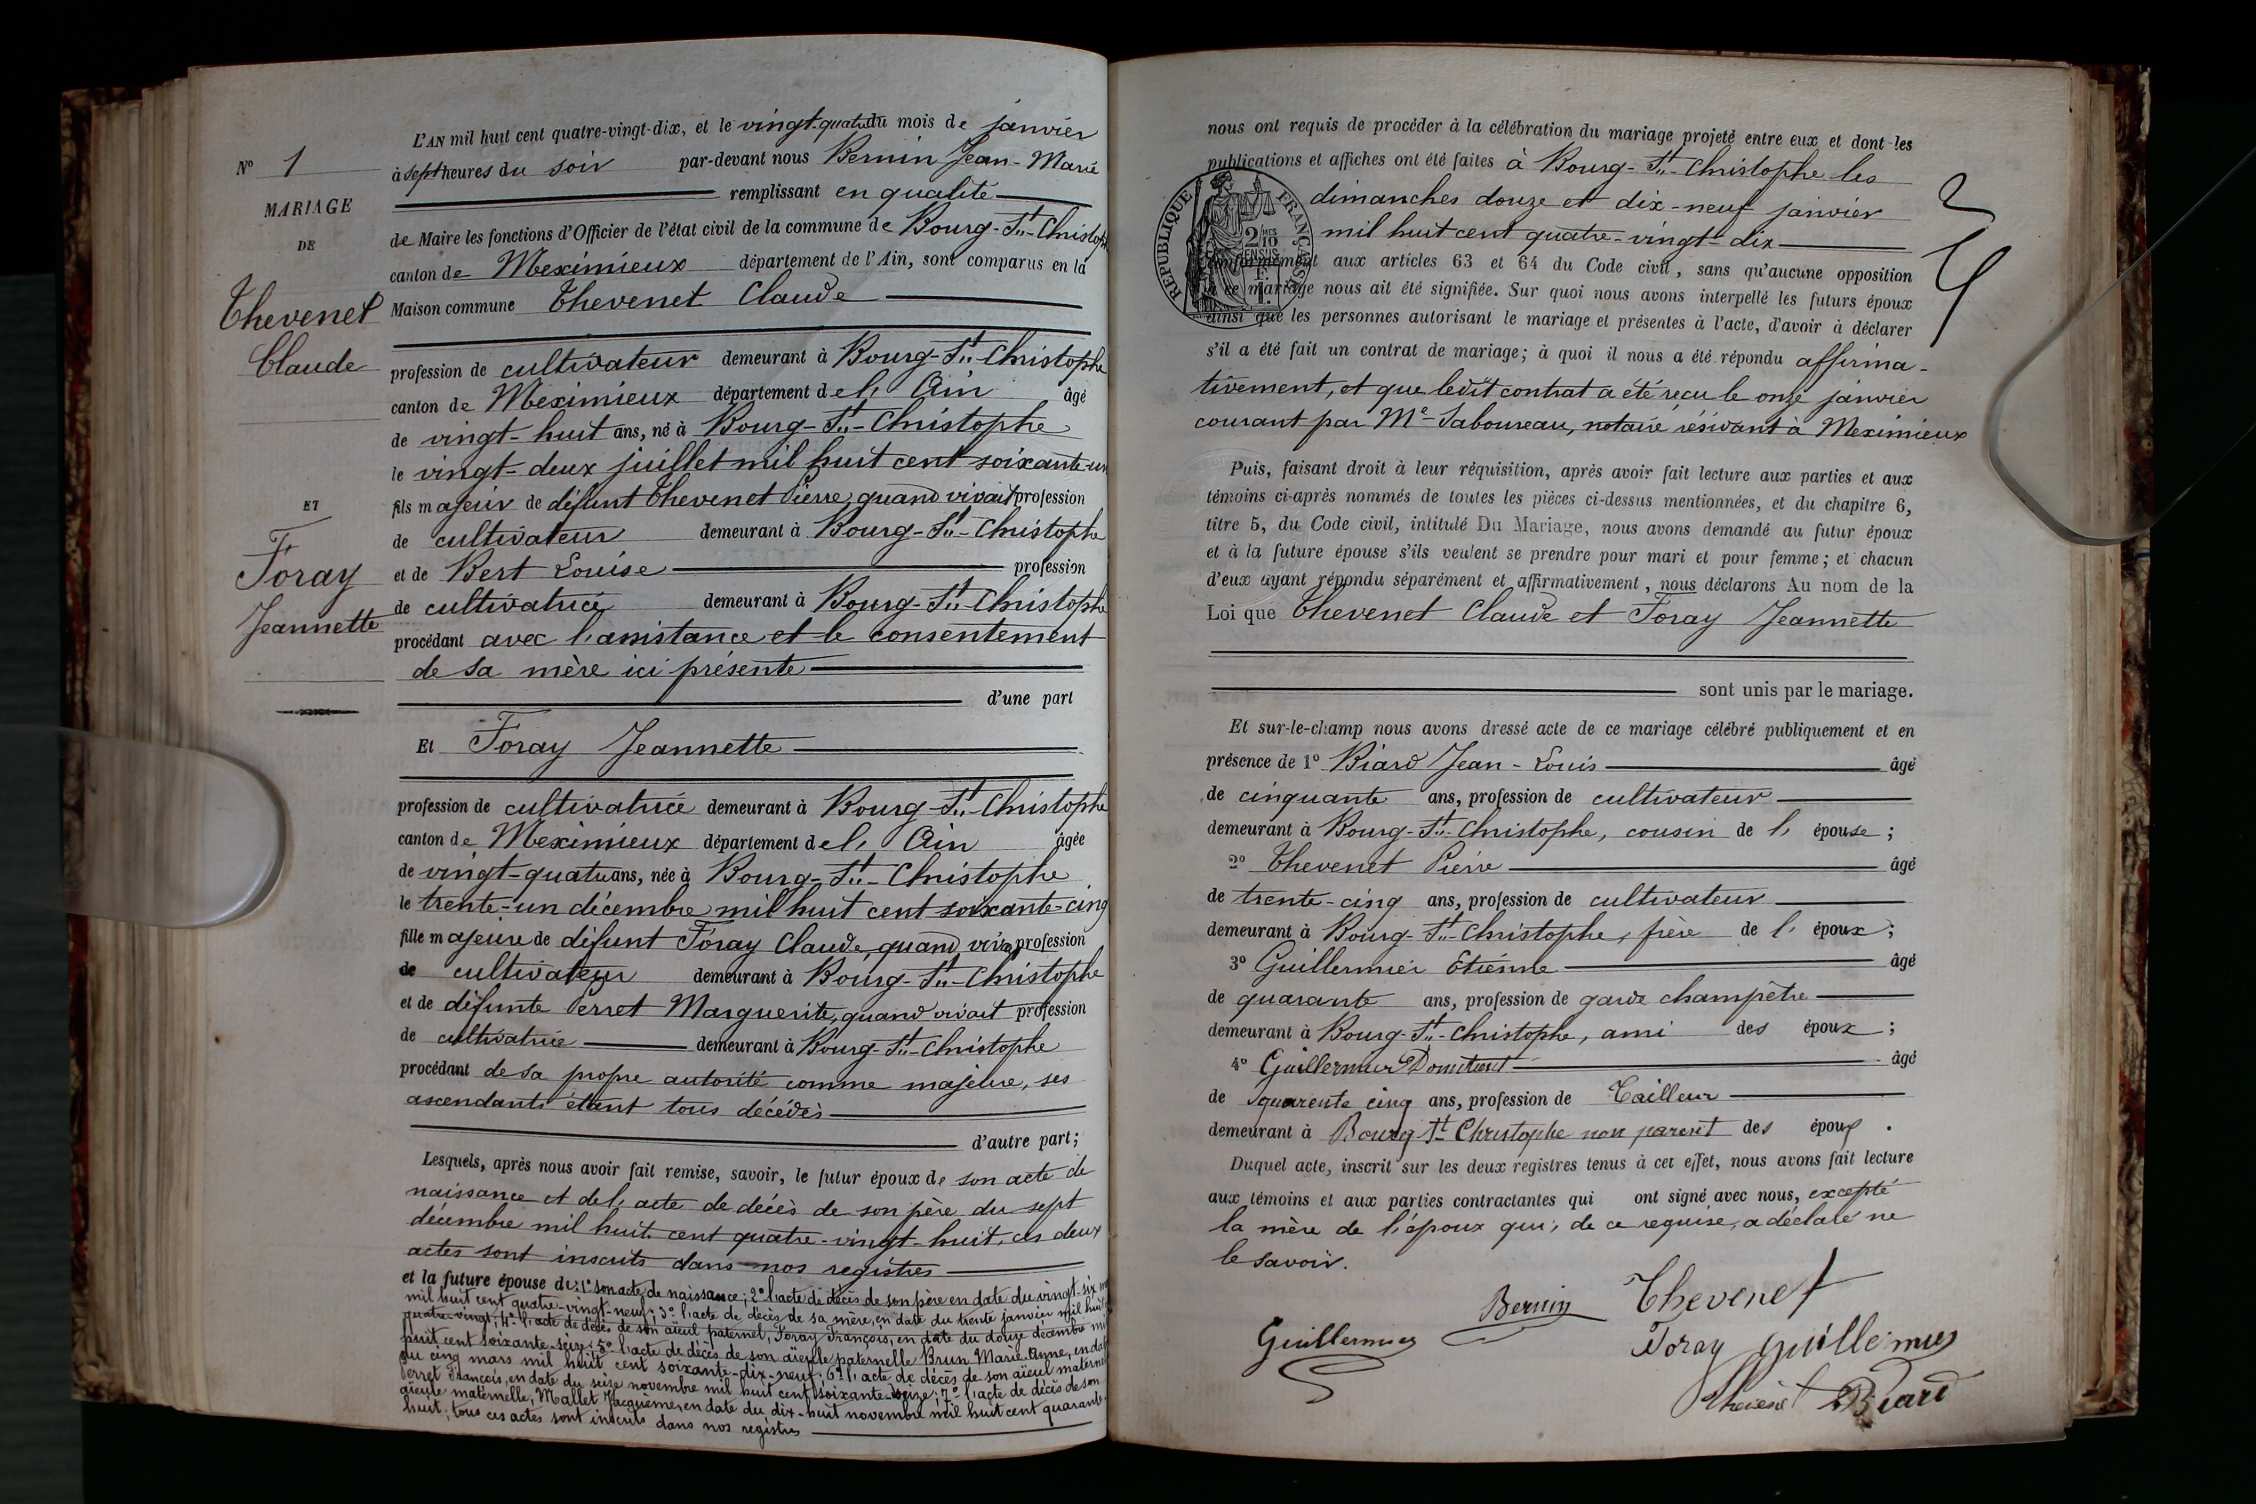 L'AN mil huit cent quatre-vingt-dix, et le vingt-quatre du mois de janvier
N° 1
à sept heures du soir par-devant nous Bernin Jean-Marie
remplissant en qualité
MARIAGE
DE
de Maire les fonctions d'Officier de l'état civil de la commune de Bourg-St-Christophe
canton de Meximieux département de l'Ain, sont comparus en la
Thevenet
Claude
Maison commune Thevenet Claude
profession de cultivateur demeurant à Bourg-St-Christophe
canton de Meximieux département de l'Ain âgé
de vingt-huit ans, né à Bourg-St-Christophe
le vingt-deux juillet mil huit cent soixante-un
ET
fils majeur de défunt Thevenet Pierre, quand vivait profession
de cultivateur demeurant à Bourg-St-Christophe
Foray
Jeannette
et de Bert Louise profession
de cultivatrice demeurant à Bourg-St-Christophe
procédant avec l'assistance et le consentement
de sa mère ici présente
d'une part
Et Foray Jeannette
profession de cultivatrice demeurant à Bourg-St-Christophe
canton de Meximieux département de l'Ain âgée
de vingt-quatre ans, née à Bourg-St-Christophe
le trente-un décembre mil huit cent soixante-cinq
fille majeure de défunt Foray Claude, quand vivait profession
de cultivateur demeurant à Bourg-St-Christophe
et de défunte Perret Marguerite, quand vivait profession
de cultivatrice demeurant à Bourg-St-Christophe
procédant de sa propre autorité comme majeure, ses
ascendants étant tous décédés
d'autre part;
Lesquels, après nous avoir fait remise, savoir, le futur époux de son acte de
naissance et de l'acte de décès de son père du sept
décembre mil huit cent quatre-vingt-huit, ces deux
actes sont inscrits dans nos registres
et la future épouse de: 1° son acte de naissance; 2° l'acte de décès de son père en date du vingt-six
mil huit cent quatre-vingt-neuf; 3° l'acte de décès de sa mère, en date du trente janvier mil huit
quatre-vingt; 4° l'acte de décès de son aïeul paternel, Foray François, en date du douze décembre mil
huit cent soixante-seize; 5° l'acte de décès de son aïeule paternelle Brun Marie Anne, en date
du cinq mars mil huit cent soixante-dix-neuf; 6° l'acte de décès de son aïeul maternel
Perret François, en date du seize novembre mil huit cent soixante-seize; 7° l'acte de décès de son
aïeule maternelle, Mallet Jacquême, en date du dix-huit novembre mil huit cent quarante-
huit; tous ces actes sont inscrits dans nos registres
nous ont requis de procéder à la célébration du mariage projeté entre eux et dont les
publications et affiches ont été faites à Bourg-St-Christophe les
dimanches douze et dix-neuf janvier
mil huit cent quatre-vingt-dix
RÉPUBLIQUE FRANÇAISE
2/10 MES
EN SUS
conformément aux articles 63 et 64 du Code civil, sans qu'aucune opposition
à ce mariage nous ait été signifiée. Sur quoi nous avons interpellé les futurs époux
ainsi que les personnes autorisant le mariage et présentes à l'acte, d'avoir à déclarer
s'il a été fait un contrat de mariage; à quoi il nous a été répondu affirma-
tivement, et que ledit contrat a été reçu le onze janvier
courant par Me Laboureau, notaire résidant à Meximieux
Puis, faisant droit à leur réquisition, après avoir fait lecture aux parties et aux
témoins ci-après nommés de toutes les pièces ci-dessus mentionnées, et du chapitre 6,
titre 5, du Code civil, intitulé Du Mariage, nous avons demandé au futur époux
et à la future épouse s'ils veulent se prendre pour mari et pour femme; et chacun
d'eux ayant répondu séparément et affirmativement, nous déclarons Au nom de la
Loi que Thevenet Claude et Foray Jeannette
sont unis par le mariage.
Et sur-le-champ nous avons dressé acte de ce mariage célébré publiquement et en
présence de 1° Biard Jean-Louis âgé
de cinquante ans, profession de cultivateur
demeurant à Bourg-St-Christophe, cousin de l' épouse;
2° Thevenet Pierre âgé
de trente-cinq ans, profession de cultivateur
demeurant à Bourg-St-Christophe, frère de l' époux;
3° Guillermier Etienne âgé
de quarante ans, profession de garde champêtre
demeurant à Bourg-St-Christophe, ami des époux;
4° Guillermier âgé
de quarente cinq ans, profession de Tailleur
demeurant à Bourg St Christophe non parent des époux.
Duquel acte, inscrit sur les deux registres tenus à cet effet, nous avons fait lecture
aux témoins et aux parties contractantes qui ont signé avec nous, excepté
la mère de l'époux qui, de ce requise, a déclaré ne
le savoir.
Bernin Thevenet
Guillermier Foray Guillermier
Thevenet Biard